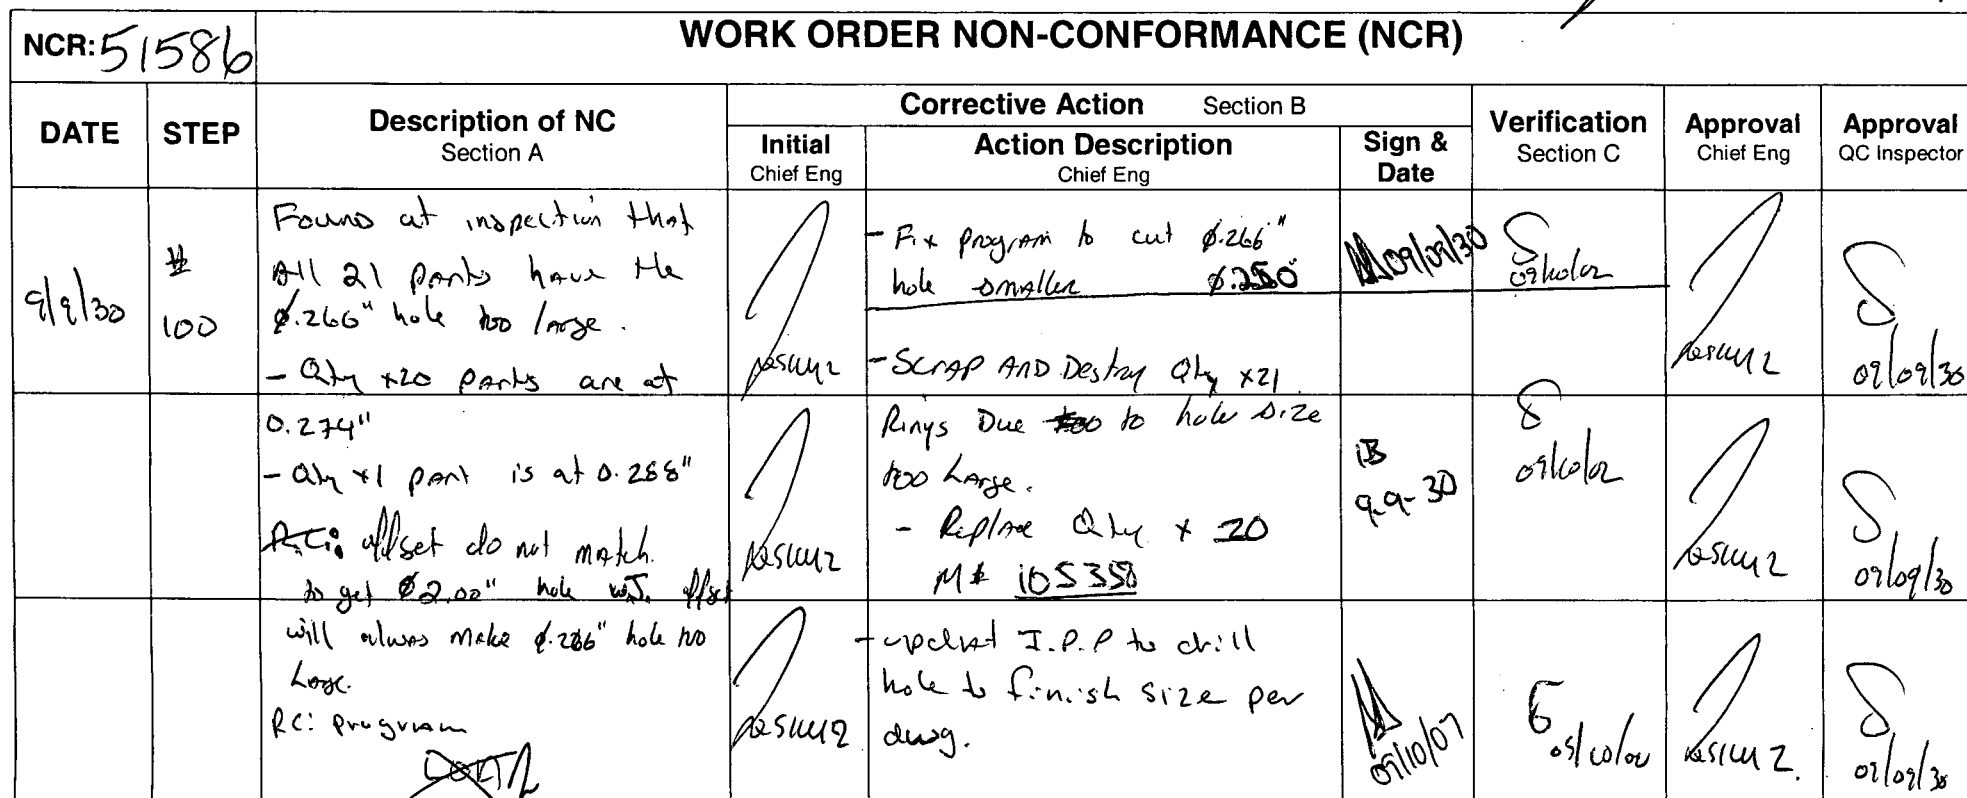 NCR: 51586
WORK ORDER NON-CONFORMANCE (NCR)
DATE
STEP
Description of NC
Section A
Corrective Action Section B
Initial
Chief Eng
Action Description
Chief Eng
Sign &
Date
Verification
Section C
Approval
Chief Eng
Approval
QC Inspector
9/9/30
#
100
Found at inspection that
All 21 parts have the
Ø.266" hole too large.
- Qty x20 parts are at
- Fix program to cut Ø.266"
hole smaller Ø.250"
- Scrap AND Destroy Qty x21
09/09/30
09/10/02
09/09/30
0.274"
- Qty x1 part is at 0.288"
R.C: offset do not match.
to get Ø2.00" hole W.J. offset
Rings Due too to hole size
too Large.
- Replace Qty x 20
M# 105358
9-9-30
09/10/02
09/09/30
will alwas make Ø.266" hole too
Large.
RC: program
- updat I.P.P to drill
hole to finish size per
dwg.
09/10/07
09/09/30